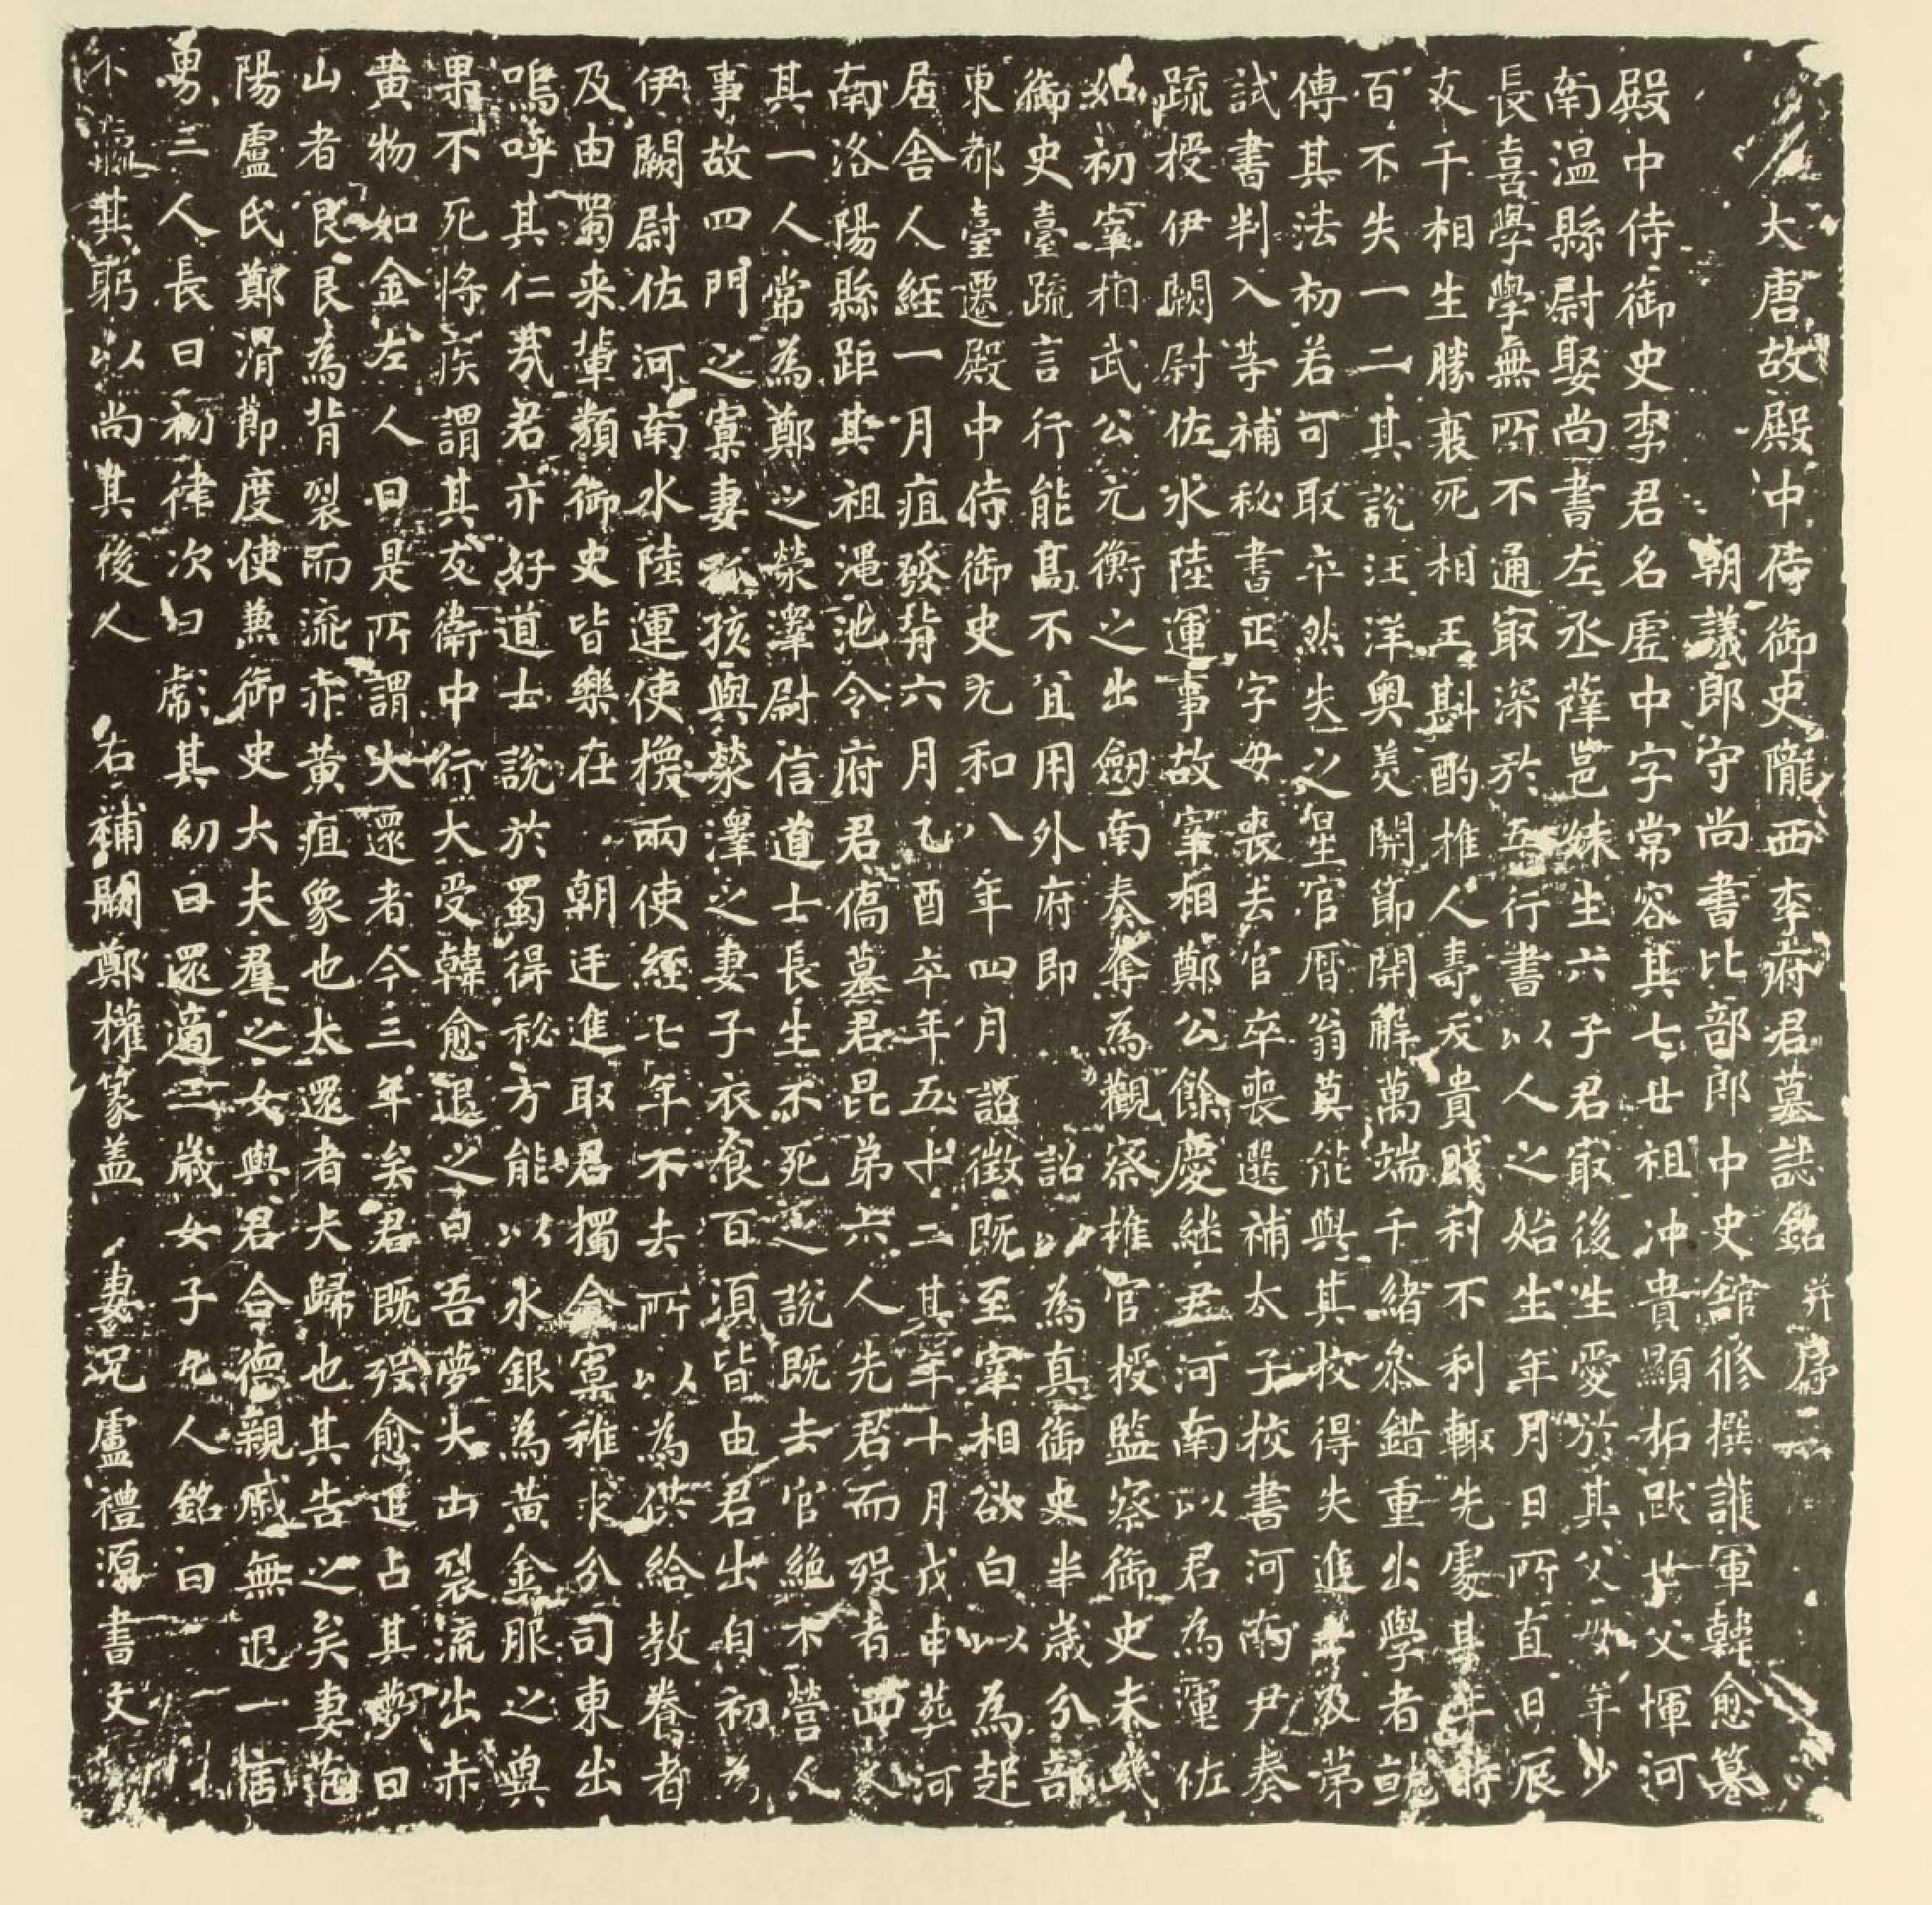 大唐故殿中侍御史隴西李府君墓誌銘并序
朝議郎守尚書比部郎中史館修撰護軍韓愈纂
殿中侍御史李君名虛中字常容其七廿祖沖貴顯柘跋世父惲河
南溫縣尉娶尚書左丞薛邕妹生六子君㝡後生愛於其父母年少
長喜學學無所不通㝡深於五行書以人之始生年月日所直日辰
支干相生勝衰死相王斟酌推人壽夭貴賤利不利輙先處其年時
百不失一二其說汪洋奧美關節開解萬端千緒叅錯重出學者就
傳其法初若可取卒然失之星官曆翁莫能與其校得失進士及第
試書判入等補秘書正字母喪去官卒喪選補太子校書河南尹奏
疏授伊闕尉佐水陸運事故宰相鄭公餘慶継尹河南以君為運佐
如初宰相武公元衡之出劒南奏奪為觀察推官授監察御史未幾
御史臺疏言行能高不宜用外府即詔以為真御史半歲分部
東都臺遷殿中侍御史元和八年四月詔徵既至宰相欲白以為起
居舍人經一月疽發背六月乙酉卒年五十二其年十月戊申葬河
南洛陽縣距其祖澠池令府君僑墓君昆弟六人先君而歿者四人
其一人常為鄭之滎澤尉信道士長生不死之說既去官絕不營人
事故四門之寡妻孤孩與滎澤之妻子衣食百須皆由君出自初為
伊闕尉佐河南水陸運使換兩使經七年不去所以為供給教養者
及由蜀来輩類御史皆樂在朝廷進取君獨念寡稚求分司東出
嗚呼其仁㢤君亦好道士說於蜀得秘方能以水銀為黃金服之冀
果不死將疾謂其友衛中行大受韓愈退之曰吾夢大山裂流出赤
黃物如金左人曰是所謂大還者今三年矣君既歿愈追占其夢曰
山者艮艮為背裂而流赤黃疽象也大還者大歸也其告之矣妻范
陽盧氏鄭滑節度使兼御史大夫羣之女與君合德親戚無退一言
男三人長曰初律次曰彪其幼曰還適三歲女子九人銘曰
不贏其躬以尚其後人　右補闕鄭權篆盖　妻兄盧禮源書文